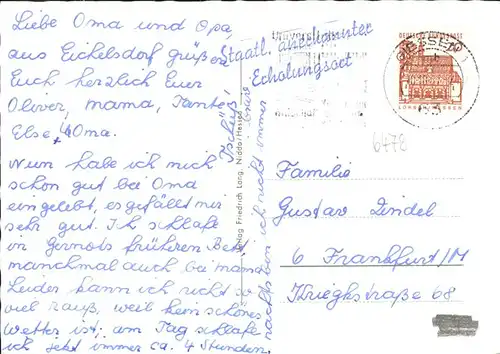 Liebe Oma und Opa,
aus Eichelsdorf grüßen
Euch herzlich Euer
Oliver, mama, Tante
Else + Oma.
Nun habe ich mich
schon gut bei Oma
eingelebt, es gefällt mir
sehr gut. Ich schlafe
in Gernots früheren Bett
manchmal auch bei mama
Leider kann ich nicht so
viel rauß, weil kein schönes
Wetter ist; am Tag schlafe
ich jetzt immer ca. 4 Stunden.
nachts bin ich nicht immer
Tschüß!
Staatl. anerkannter
Erholungsort
Verlag Friedrich Lang, Nidda/Hessen
DEUTSCHE
GIESSEN 1
LORSCH HESSEN
6478
Familie
Gustav Zindel
6 Frankfurt/M
Kriegkstraße 68